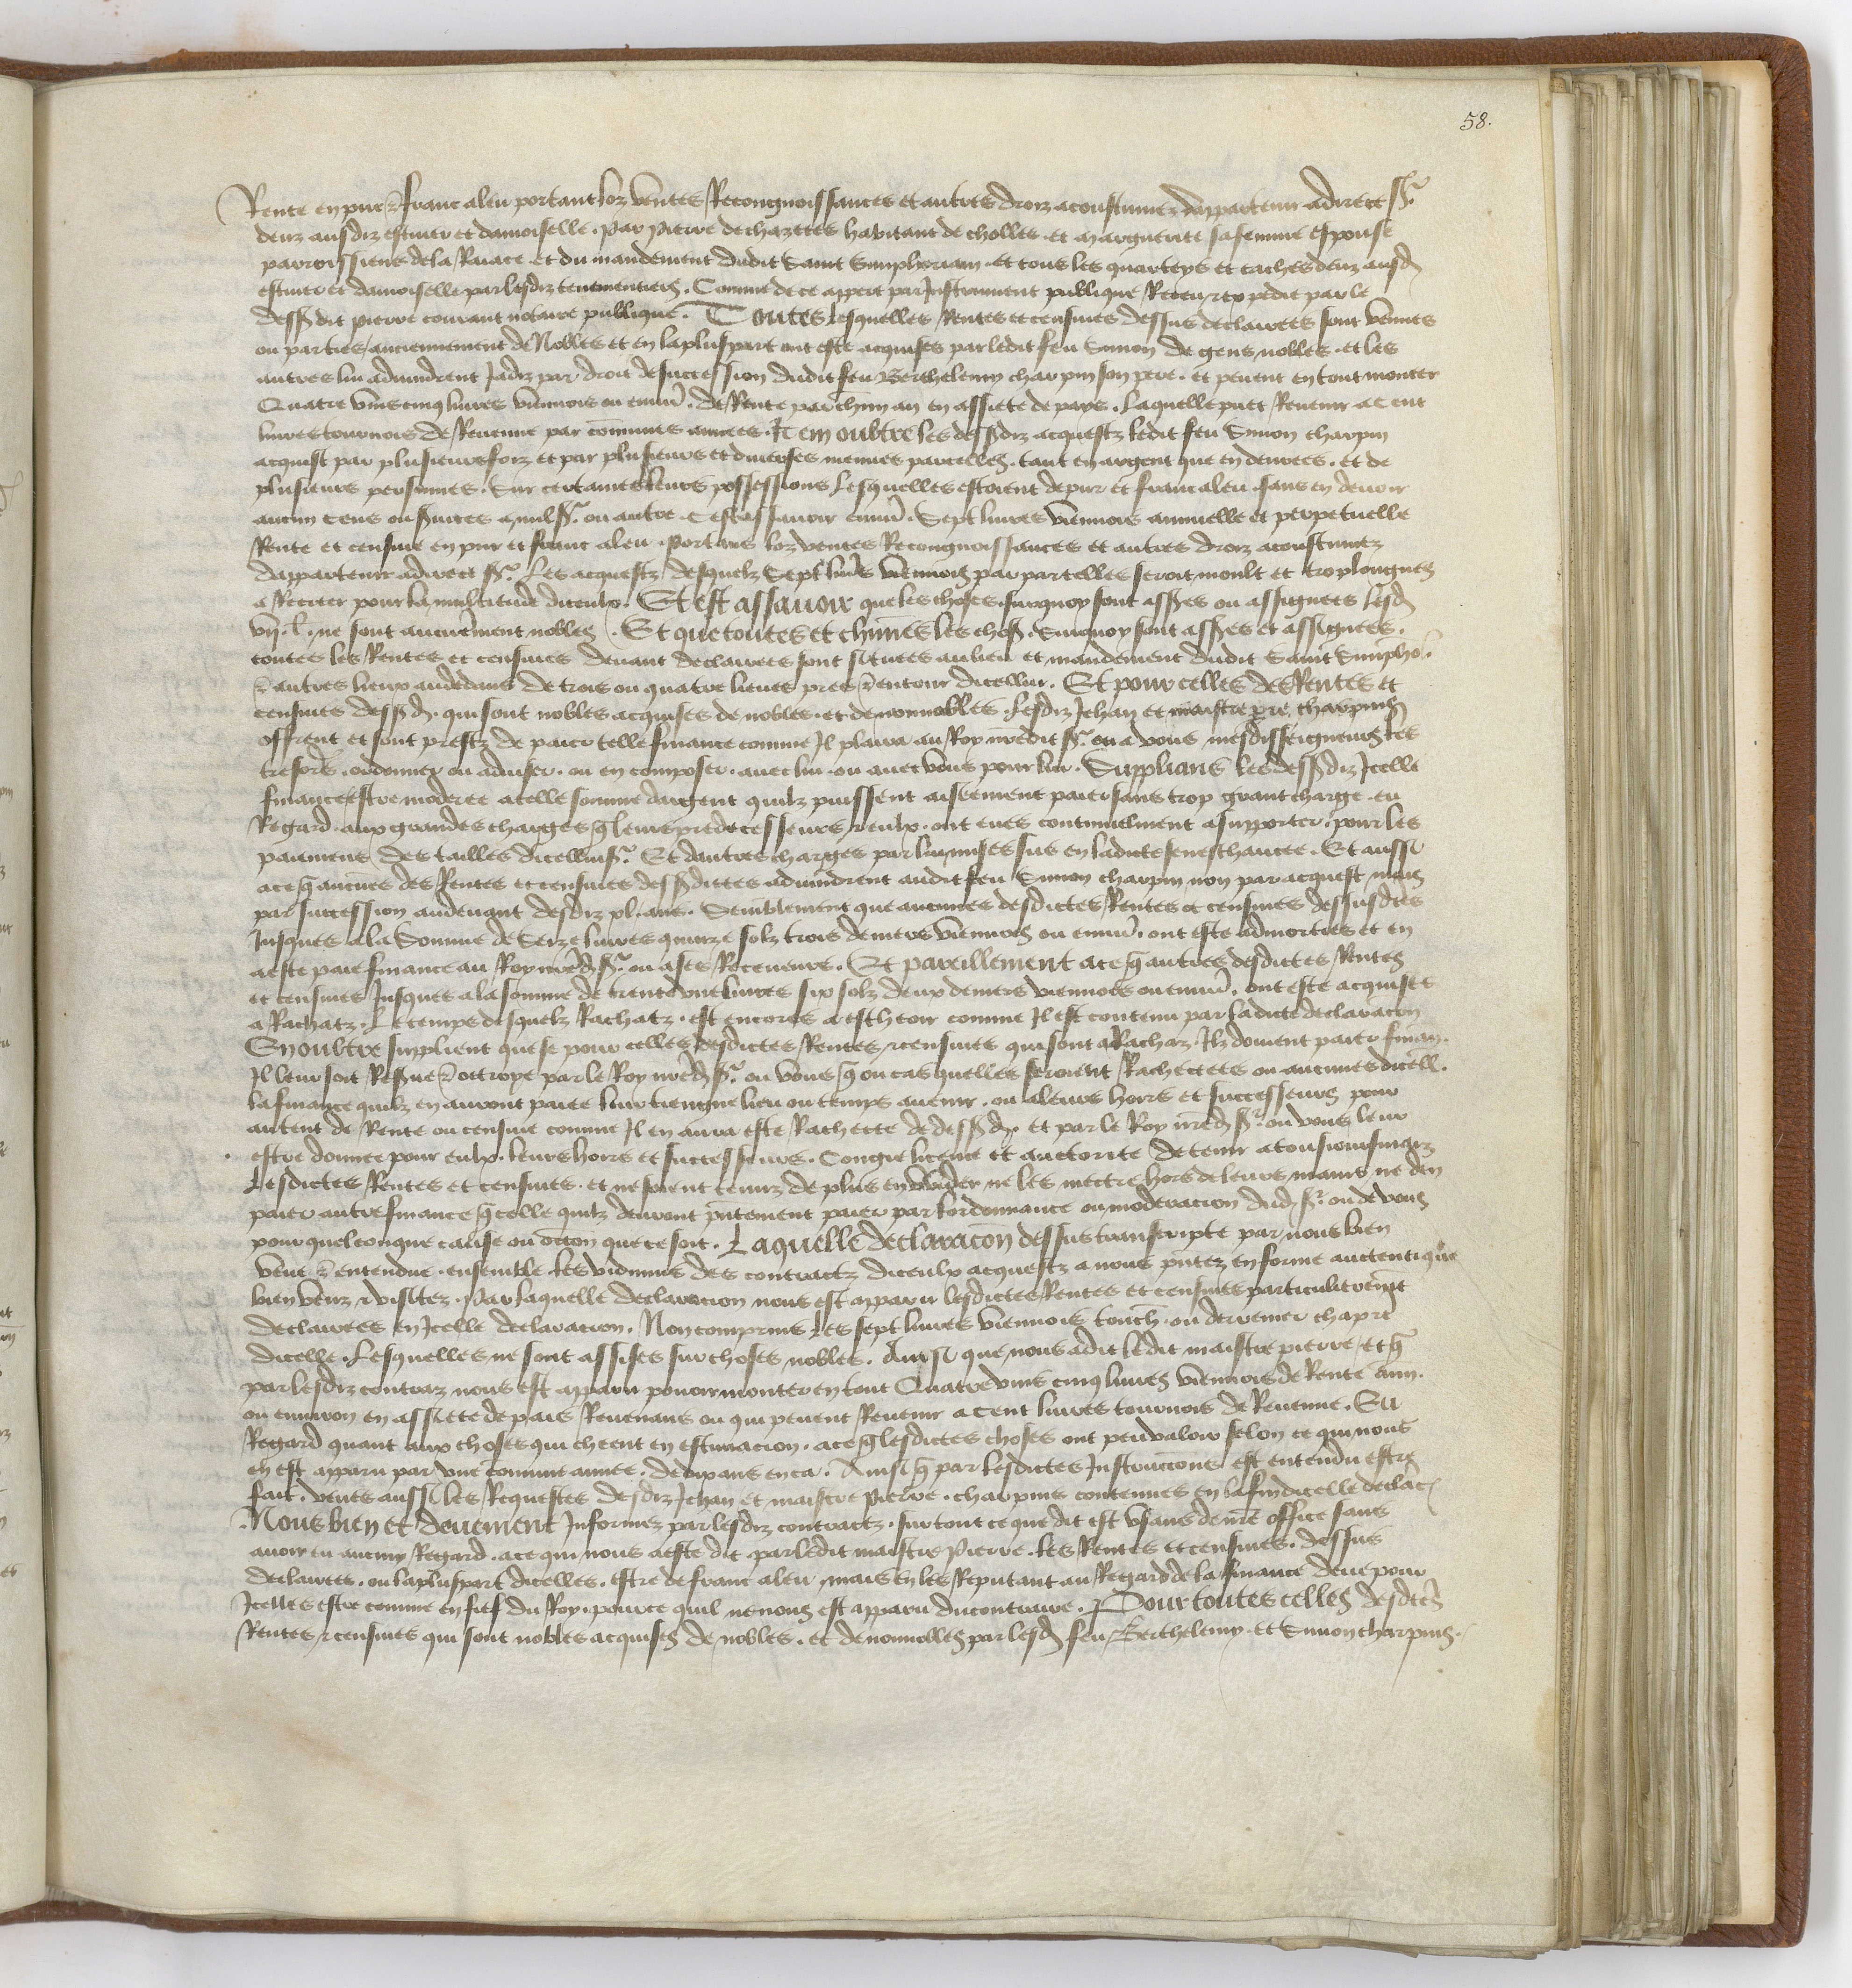 58.
Rente en pur & franc aleu portant loz ventes Recongnoissances et autres droiz acoustumez dappartenir a direct sr
deuz ausdiz escuier et damoiselle. par pierre de chazettes habitant de cholles. et marguerite sa femme espouse
parroissiens de la Raiace et du mandement dudit saint Simphorian. et tous les quarteys et taches deuz ausd
escuier et damoiselle par lesdiz tenementiers. Comme de ce appert par Instrument publique Receu & expedit par le
dessdit pierre courant notaire publique. Toutes lesquelles Rentes et censiues dessus declairees sont venues
ou parties anciennement de Nobles et en la pluspart ont este acquises par ledit feu Simon de gens nobles. et les
autres lui aduindrent Jadiz par droit de succession dudit feu Berthelemy charpin son pere. et peuent en tout monter
Quatre vins cinq liures viennois ou enuir. de Rente par chun an en assiete de pays. Laquelle puet Reuenir a Cent
liures tournois de Reuenue par communes annees. Item oultre les dessdiz acquestz ledit feu Simon charpin
acquist par plusieurs foiz et par plusieurs et diuerses menues parcelles. tant en argent que en denrees. et de
plusieurs personnes. Sur certaines leurs possessions lesquelles estoient de pur et franc aleu. sans en deuoir
aucun cens ou seruices a nul sr ou autre. Cestassauoir enuir. Sept liures viennois annuelle et perpetuelle
Rente et censiue en pur et franc aleu. portans loz ventes Recongnoissances et autres droiz acoustumez
dappartenir a direct sr. Les acquestz desquelz Sept liures viennois par parcelles seroit moult et trop longues
a Reciter pour la multitude diceulx. Et est assauoir que les choses surquoy sont asses ou assignees lesd
vij. l. ne sont aucunement nobles. Et que toutes et chunes les chos. surquoy sont asses et assignees.
toutes les Rentes et censiues deuant declairees sont situees au lieu et mandement dudit saint Simpho.
& autres lieux au dedans de trois ou quatre lieues pres & entour dicellui. Et pour celles des Rentes et
censiues dessd. qui sont nobles acquises de nobles. et de nonnobles. Lesdiz Jehan et maistre pre charpins
offrent et sont prestz de paier telle finance comme Il plaira au Roy nredit sr. ou a vous mesdisseigneurs les
tresors. ordonner ou aduiser. ou en composer. auec lui. ou auec vous pour lui. Supplians les dessdiz Icelle
finance estre moderee a telle somme dargent quilz puissent aiseement paier sans trop grant charge. eu
Regard. aux grandes charges q leurs predecesseurs & eulx. ont eues continuelment a supporter. pour les
paiemens des tailles dicelluisr. Et dautres charges par lui mises sus en ladicte seneschaucee. Et aussi
a ce q aucunes des Rentes et censiues dessdictes aduindrent audit feu Simon charpin non par acquest mais
par succession au deuant desdiz xl. ans. Semblement que aucunes desdictes Rentes et censiues dessusdtes
Jusques a la Somme de Seize liures quinze solz trois deniers viennois ou enuir. ont este admorties et en
a este paie finance au Roy nred sr. ou a ses Receueurs. Et pareillement a ce q autres desdictes Rentes
et censiues Jusques a la somme de trente vne liures six solz deux deniers viennois ou enuir. ont este acquises
a Rachatz. Le temps desquelz Rachatz. est encores a escheoir comme Il est contenu par ladicte declaracion
En oultre supplient que se pour celles desdictes Rentes & censiues qui sont a Rachaz. Ilz doiuent paier finan.
Il leur soit Reserue & ottroye par le Roy nred sr. ou vous q ou cas quelles seroient Rachetees ou aucunes dicell.
la finance quilz en auront paiee leur tiengne lieu ou temps auenir. ou a leurs hoirs et successeurs pour
autent de Rente ou censiue comme Il en aura este Rachette de dessd. et par le Roy nred sr. ou vous leur
estre donnee pour eulx. leurs hoirs et successeurs. Congie licence et auctorite de tenir a tousioursmaiz
Lesdictes Rentes et censiues. et ne soient tenuz de plus en vuider ne les mectre hors de leurs mains ne den
paier autre finance q celle quilz deuront pntement paier par lordonnance ou moderacion dud sr. ou de vous
pour quelconque cause ou occon que ce soit. Laquelle declaracon dessus transcripte par nous bien
veue & entendue. ensemble les vidimus des contractz diceulx acquestz a nous pntez en forme auctentique
bien veuz & visitez. Par laquelle declaracion nous est apparu lesdictes Rentes et censiues particulierent
declairees en Icelle declaracion. Non comprins les sept liures viennois touch. ou derrenier chapre
dicelle. Lesquelles ne sont assises sur choses nobles. Ainsi que nous a dit ledit maistre pierre. et q
par lesdiz contraz nous est apparu pouoir monter en tout Quatre vins cinq liures viennois de Rente ann.
ou enuiron en assiete de pais Reuenans ou qui peuent Reuenir a cent liures tournois de Reuenue. Eu
Regard quant aux choses qui cheent en estimacion. a ce q lesdictes choses ont peu valoir selon ce qui nous
en est apparu par vne commune annee. de dix ans en ca. Ainsi q par lesdictes Instructions est entendu estre
fait. veues aussi les Requestes desdiz Jehan et maistre Pierre. charpins contenues en la fin dicelle declac
Nous bien et deuement Informez par lesdiz contractz. sur tout ce que dit est vsans de nre office sans
auoir eu aucun Regard. a ce qui nous a este dit par ledit maistre Pierre. les Rentes et censiues. dessus
declairees. ou la pluspart dicelles. estre de franc aleu mais en les Reputant au Regard de la finance deue pour
Icelles estre comme en fief du Roy. pource quil ne nous est apparu du contraire. Pour toutes celles desdtes
Rentes & censiues qui sont nobles acquises de nobles. et de nonnobles par lesd feu Berthelemy et Simon charpins.